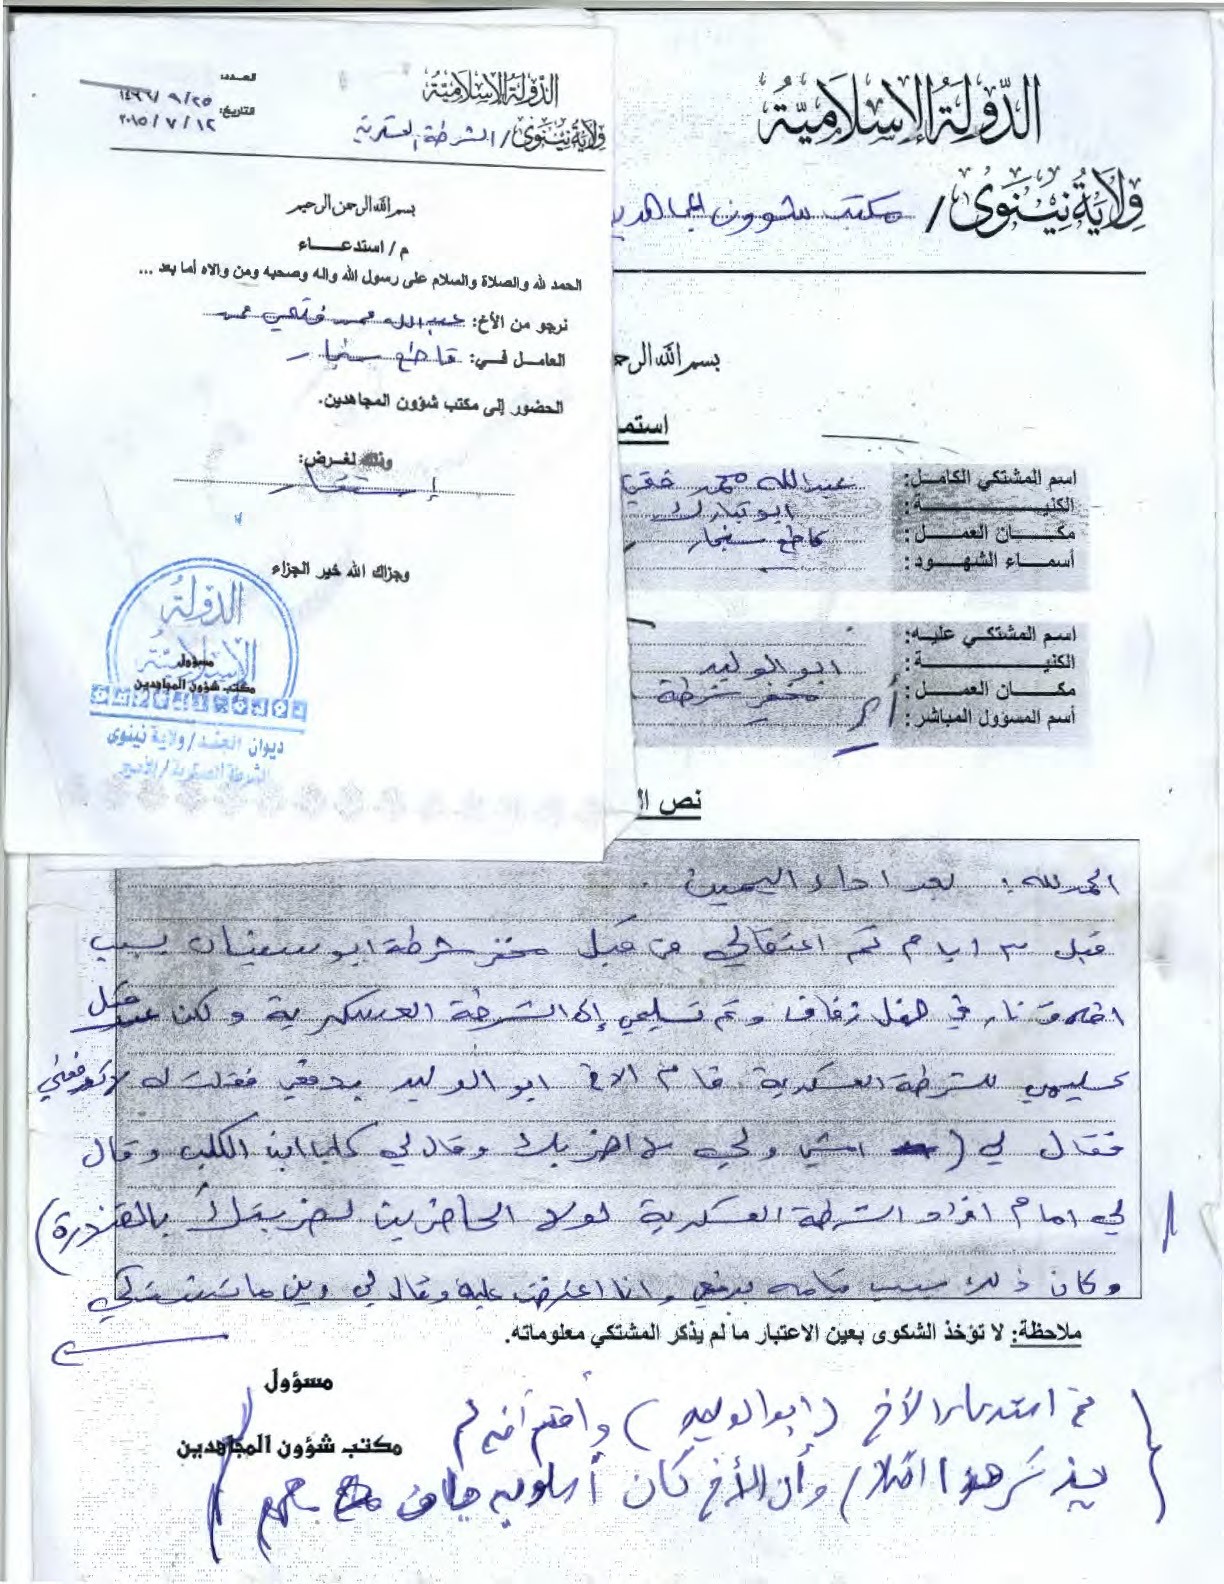 العدد:
التاريخ: ١٤٣٦/٩/٢٥
٢٠١٥/٧/١٢
الدولة الإسلامية
ولاية نينوى / الشرطة العسكرية
بسم الله الرحمن الرحيم
م / استدعاء
الحمد لله والصلاة والسلام على رسول الله واله وصحبه ومن والاه أما بعد ...
نرجو من الأخ: عبدالله محمد فتحي محمد
العامل في: قاطع سنجار
الحضور إلى مكتب شؤون المجاهدين.
وذلك لغرض:
إستفسار
وجزاك الله خير الجزاء
الدولة
الإسلامية
مسؤول
مكتب شؤون المجاهدين
ديوان الجند / ولاية نينوى
الشرطة العسكرية / الأمير
الدولة الإسلامية
ولاية نينوى / مكتب شؤون المجاهدين
بسم الله الرح
استم
اسم المشتكي الكامل: عبدالله محمد فتحي
الكنية: ابو تبارك
مكان العمل: قاطع سنجار
أسماء الشهود:
اسم المشتكي عليه:
الكنية: ابو الوليد
مكان العمل: مخفر شرطة
أسم المسؤول المباشر:
نص ال
الحمد لله: بعد اداء اليمين.
قبل ٣ ايام تم اعتقالي من قبل مخفر شرطة ابو سفيان بسبب
اطلاق نار في حفل زفاف وتم تسليمي إلى الشرطة العسكرية ولكن قبل
تسليمي للشرطة العسكرية قام الاخ ابو الوليد بدفعي فقلت له لا تدفعني
فقال لي ( امشي ولي لا اضربك وقال لي كلب ابن الكلب وقال
لي امام افراد الشرطة العسكرية لولا الحاضرين لضربتك بالقندرة)
وكان ذلك بسبب قيامه بدفعي وانا اعترضت عليه وقال لي وين ما تشتكي
اشتكي
ملاحظة: لا تؤخذ الشكوى بعين الاعتبار ما لم يذكر المشتكي معلوماته.
مسؤول
مكتب شؤون المجاهدين
تم استدعاء الأخ (ابو الوليد) وأقسم أنه لم
يذكر هذا الكلام وأن الأخ كان أسلوبه جاف معهم